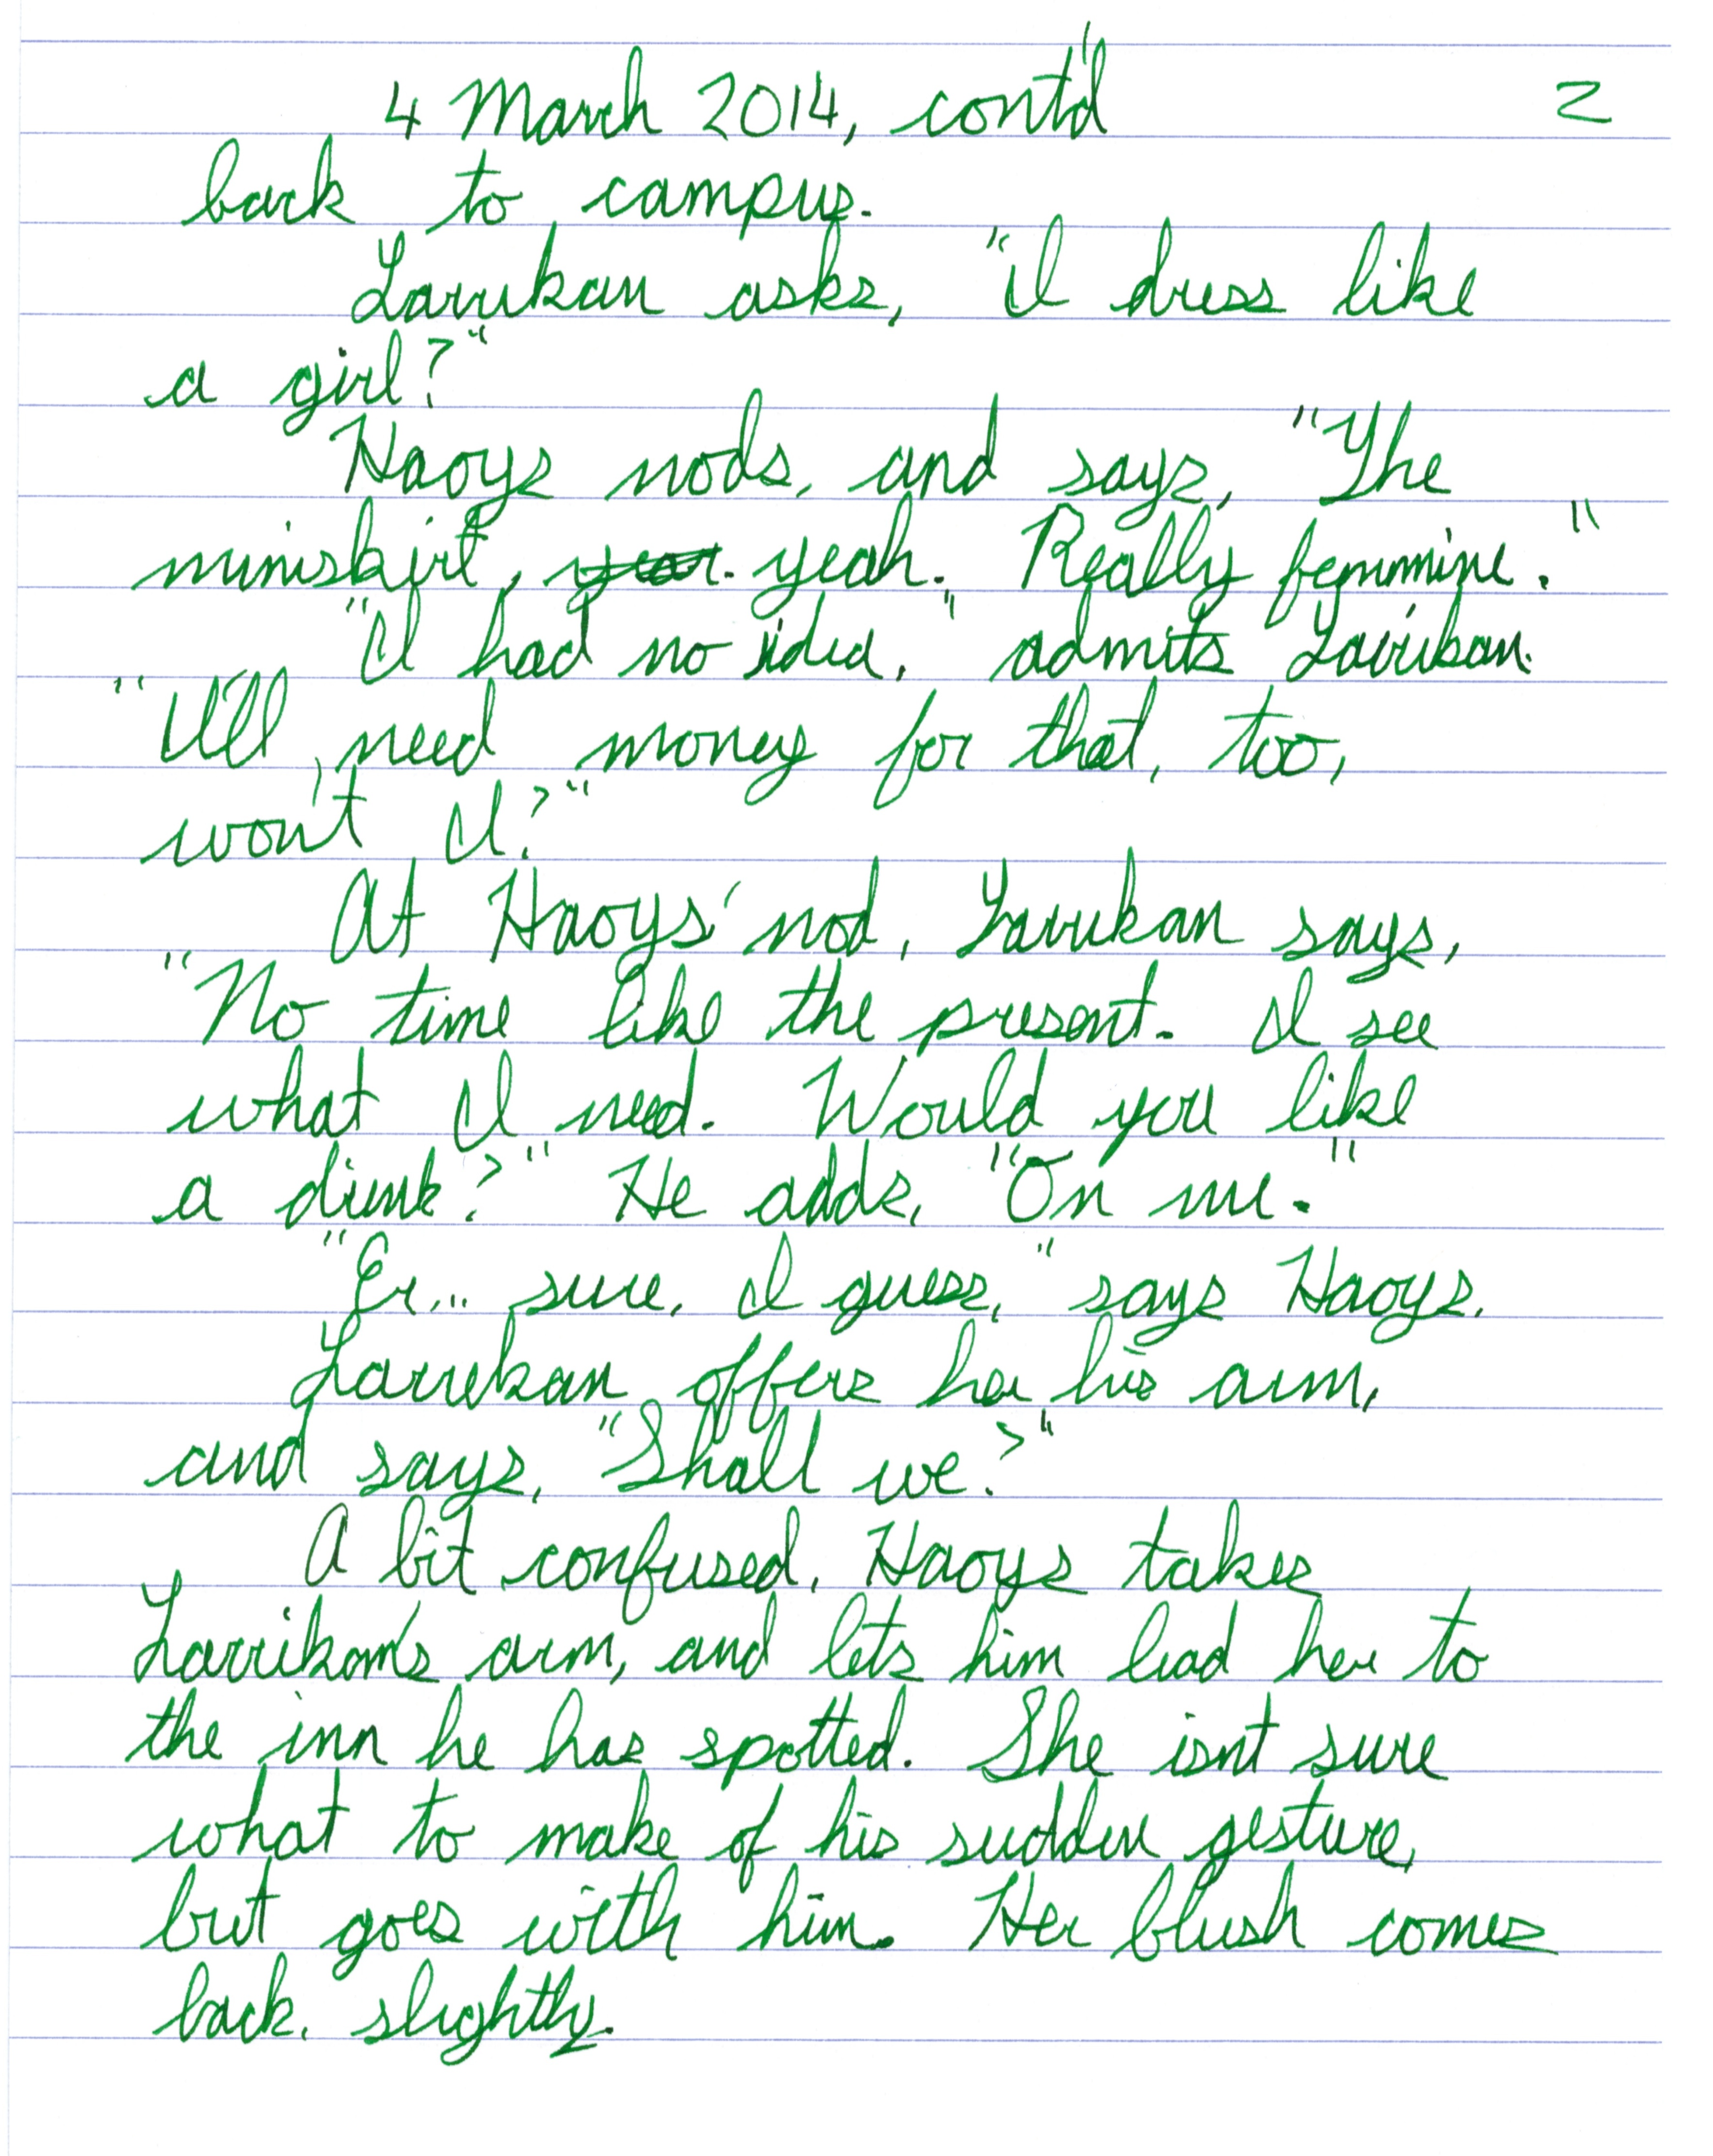 4 March 2014, cont'd 2
back to campus.
Larrikan asks, "I dress like
a girl?"
Haoys nods, and says, "The
miniskirt, yeah. Really feminine."
"I had no idea," admits Larrikan.
"I'll need money for that, too,
won't I?"
At Haoys' nod, Larrikan says,
"No time like the present. I see
what I need. Would you like
a drink?" He adds, "On me."
"Er... sure, I guess," says Haoys.
Larrikan offers her his arm,
and says, "Shall we?"
A bit confused, Haoys takes
Larrikan's arm, and lets him lead her to
the inn he has spotted. She isn't sure
what to make of his sudden gesture,
but goes with him. Her blush comes
back, slightly.